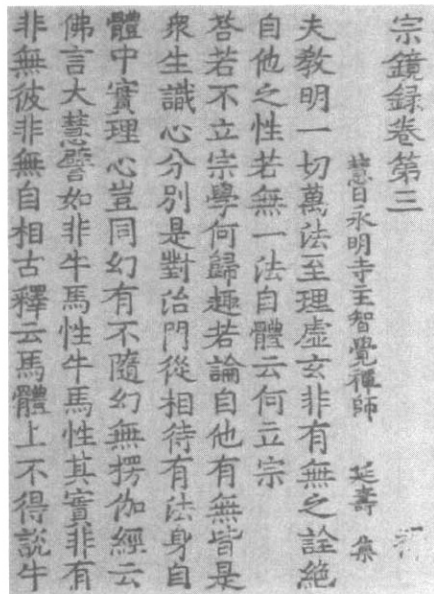 宗鏡録卷第三
慧日永明寺主智覺禪師 延壽 集
夫教明一切萬法至理虛玄非有無之詮絶
自他之性若無一法自體云何立宗
荅若不立宗學何歸趣若論自他有無皆是
衆生識心分別是對治門從相待有法身自
體中實理心豈同幻有不隨幻無楞伽經云
佛言大慧譬如非牛馬性牛馬性其實非有
非無彼非無自相古釋云馬體上不得說牛